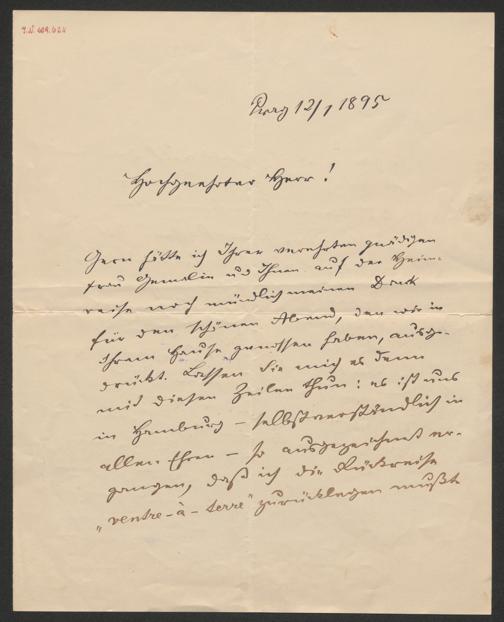 I.N. 609.624
Prag 12/1 1895
Hochgeehrter Herr!
Gern hätte ich Ihrer verehrten gnädigen
Frau Gemalin und Ihnen auf der Heim-
reise noch mündlich meinen Dank
für den schönen Abend, den wir in
Ihrem Hause genossen haben, ausge-
drückt. Lassen Sie mich es denn
mit diesen Zeilen thun: es ist uns
in Hamburg – selbstverständlich in
allen Ehren – so ausgezeichnet er-
gangen, daß ich die Rückreise
„ventre-à-terre" zurücklegen mußte